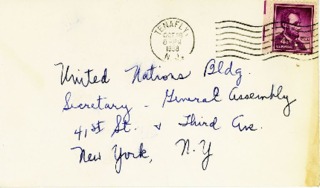 TENAFLY
1958
N.J.
United Nations Bldg.
Secretary - General Assembly
41st St. & Third Ave.
New York, N.Y